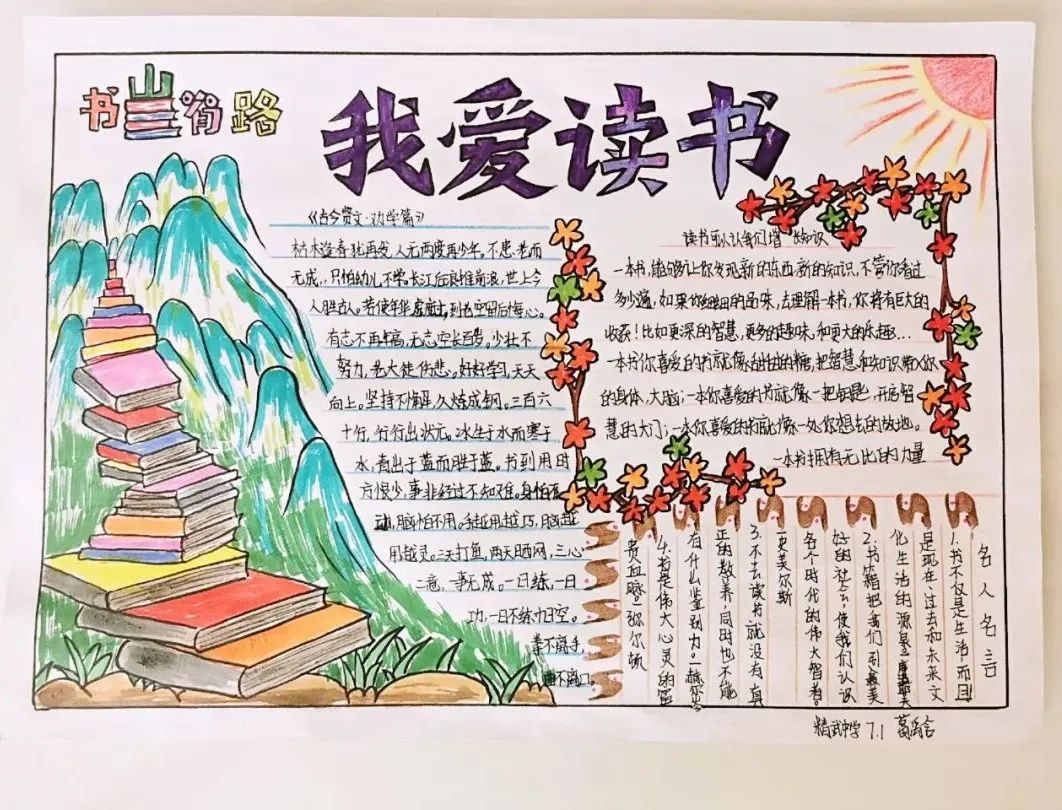 书山有路
我爱读书
《古今贤文·劝学篇》
枯木逢春犹再发,人无两度再少年。不患老而
无成,只怕幼儿不学。长江后浪推前浪,世上今
人胜古人。若使年华虚度过,到老空留后悔心。
有志不再年高,无志空长百岁。少壮不
努力,老大徒伤悲。好好学习,天天
向上。坚持不懈,久炼成钢。三百六
十行,行行出状元。冰生于水而寒于
水,青出于蓝而胜于蓝。书到用时
方恨少,事非经过不知难。身怕不
动,脑怕不用。手越用越巧,脑越
用越灵。三天打鱼,两天晒网,三心
二意,一事无成。一日练,一日
功,一日不练十日空。
拳不离手,
曲不离口。
读书可以让我们增长知识
一本书,能够让你发现新的东西,新的知识,不管你看过
多少遍,如果你细细的品味,去理解一本书,你将有巨大的
收获!比如更深的智慧,更多的趣味,和更大的乐趣...!
一本书你喜爱的书就像甜甜的糖,把智慧和知识带入你
的身体,大脑;一本你喜爱的书就像一把钥匙,开启智
慧的大门;一本你喜爱的书就像一处你想去的故地。
一本书拥有无比的力量
名人名言
1.书不仅是生活,而且
是现在、过去和未来文
化生活的源泉
2.书籍把我们引入最美
好的社会,使我们认识
各个时代的伟大智者。
—史美尔斯
3.不去读书就没有真
正的教养,同时也不能
有什么鉴别力。—赫尔岑
4.书是伟大心灵的富
贵血脉—弥尔顿
精武中学 7.1